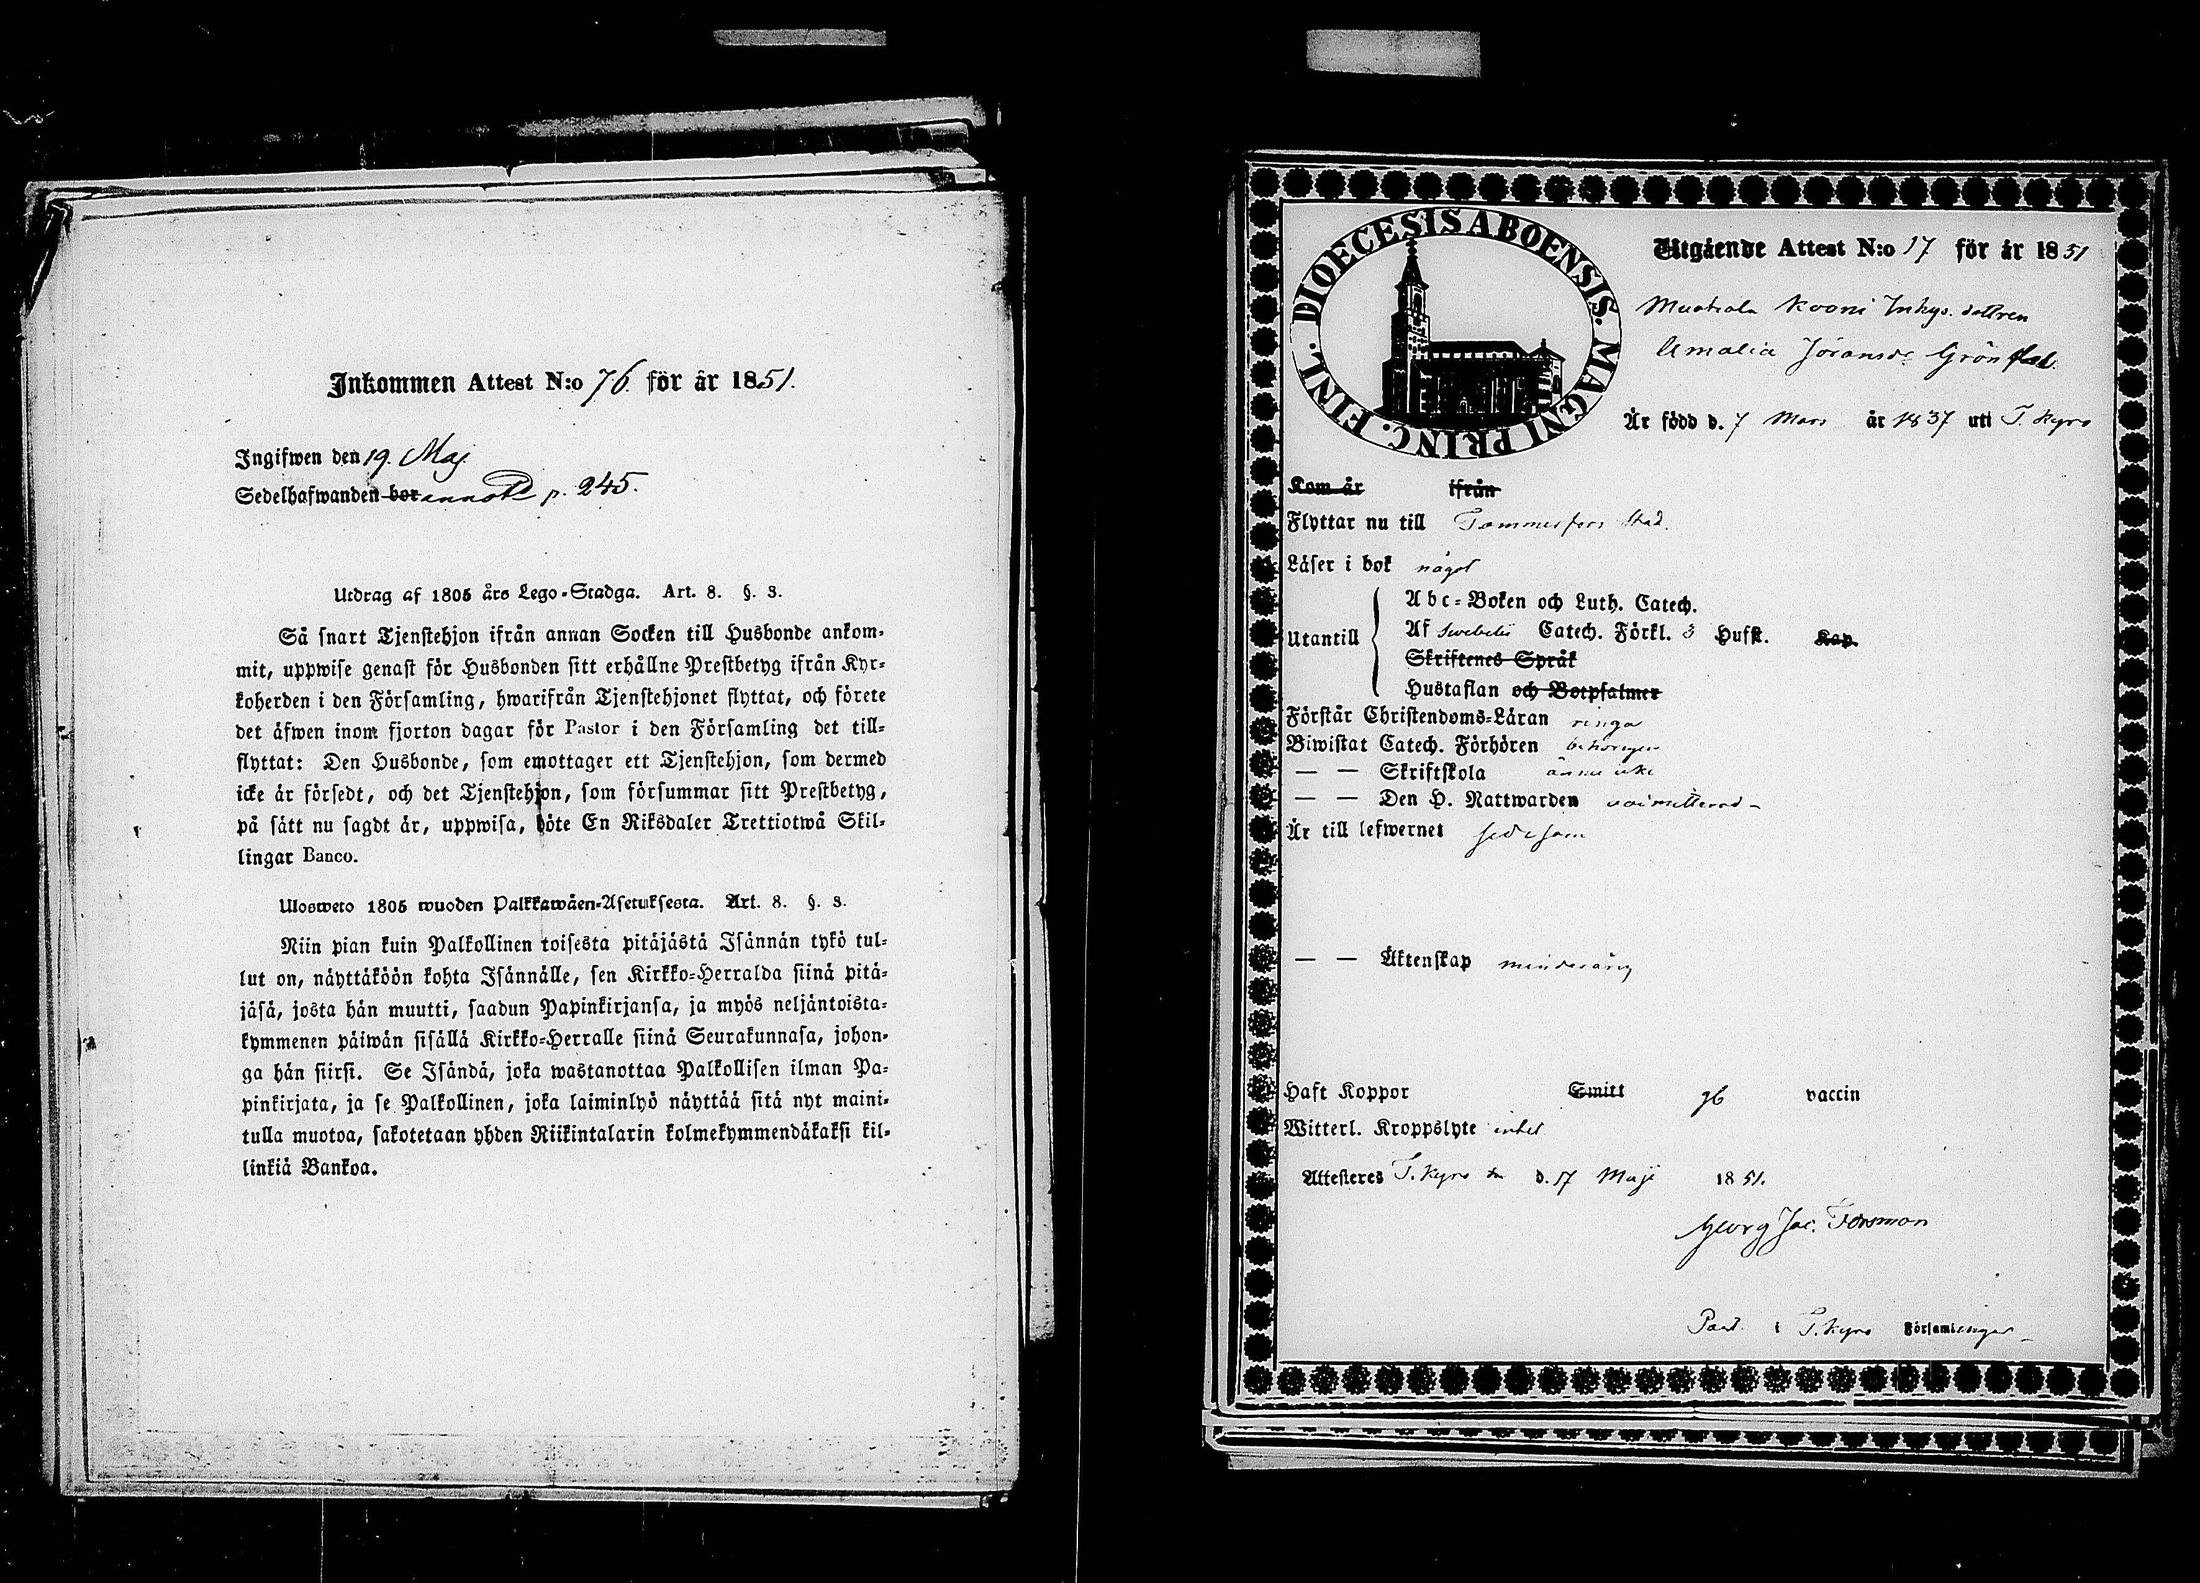 Inkommen Attest N:o 76. för år 1851.
Ingifwen den 19. Maj
Sedelhafwanden bor annot. p. 245.
Utdrag af 1805 års Lego-Stadga. Art. 8. §. 3.
Så snart Tjenstehjon ifrån annan Socken till Husbonde ankom-
mit, uppwise genast för Husbonden sitt erhållne Prestbetyg ifrån Kyr-
koherden i den Församling, hwarifrån Tjenstehjonet flyttat, och förete
det äfwen inom fjorton dagar för Pastor i den Församling det till-
flyttat: Den Husbonde, som emottager ett Tjenstehjon, som dermed
icke är försedt, och det Tjenstehjon, som försummar sitt Prestbetyg,
på sätt nu sagdt är, uppwisa, böte En Riksdaler Trettiotwå Skil-
lingar Banco.
Ulosweto 1805 wuoden Palkkawäen-Asetuksesta. Art. 8. §. 3.
Niin pian kuin Palkollinen toisesta pitäjästä Isännän tykö tul-
lut on, näyttäköön kohta Isännälle, sen Kirkko-Herralda siinä pitä-
jäsä, josta hän muutti, saadun Papinkirjansa, ja myös neljäntoista-
kymmenen päiwän sisällä Kirkko-Herralle siinä Seurakunnasa, johon-
ga hän siirsi. Se Isändä, joka wastanottaa Palkollisen ilman Pa-
pinkirjata, ja se Palkollinen, joka laiminlyö näyttää sitä nyt maini-
tulla muotoa, sakotetaan yhden Riikintalarin kolmekymmendäkaksi kil-
linkiä Bankoa.
DIOECESIS ABOENSIS. MAGNI PRINC. FINL.
Utgående Attest N:o 17 för år 1851
Inhys. dottren
Amalia Jöransdr Grön
Är född d. 7 Mars år 1837 uti T. Kyro
Kom år ifrån
Flyttar nu till Tammerfors Stad.
Läser i bok något
Utantill
Abc-Boken och Luth. Catech.
Af Svebelii Catech. Förkl. 3 Hufst. Kap.
Skriftenes Språk
Hustaflan och Botpsalmer
Förstår Christendoms-Läran ringa
Biwistat Catech. Förhören behörigen
— — Skriftskola ännu icke
— — Den H. Nattwarden oadmitterad
Är till lefwernet sedesam
— — Äktenskap minderårig
Haft Koppor Smitt gb vaccin
Witterl. Kroppslyte intet
Attesteres T. Kyro den d. 17 Maji 1851.
Georg Jac. Forsman
Past. i T. Kyro Församlingar